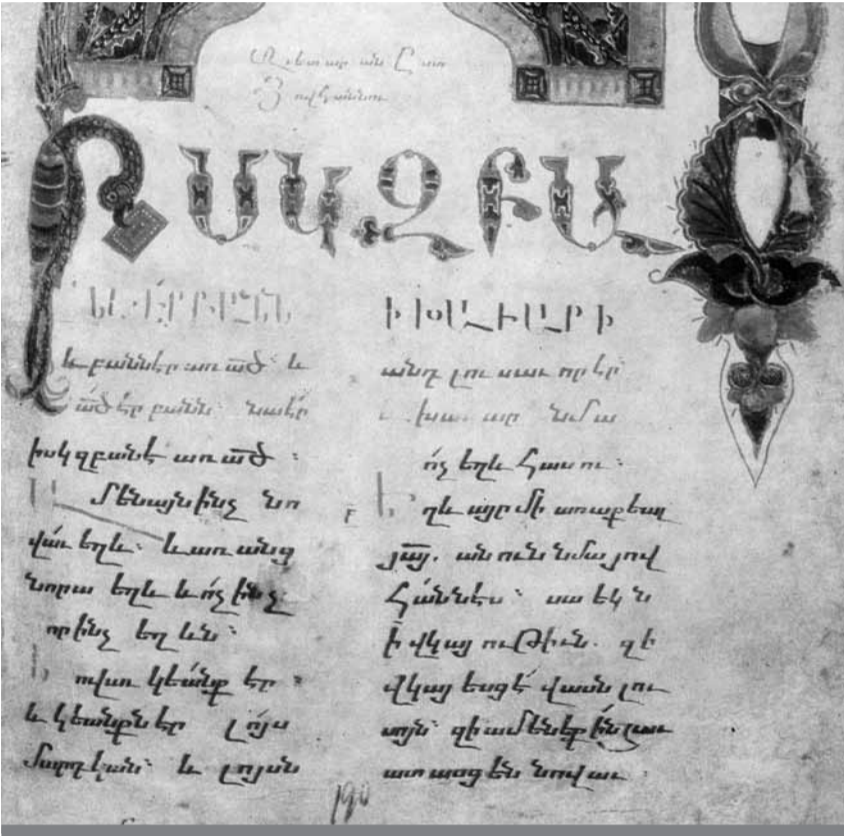 Աւետարան Ըստ
Յովհաննու
ԻՍԿԶԲԱ
ՆԷ ԷՐ ԲԱՆՆ
և բանն էր առ ած։ և
ած էր բանն։ նա էր
իսկզբանէ առ ած։
Ամենայն ինչ նո
վաւ եղև։ և առանց
նորա եղև և ոչ ինչ
որ ինչ եղևն։
Նովաւ կեանք էր։
և կեանքն էր լոյս
մարդկան։ և լոյսն
Ի ԽԱՒԱՐԻ
անդ լուսաւոր էր
և խաւար նմա
ոչ եղև հասու։
Եղև այր մի առաքեալ
յայ. անուն նմա յով
հաննէս։ սա եկն
ի վկայութիւն. զի
վկայեսցէ վասն լու
սոյն։ զի ամենեքին հաւա
տասցեն նովաւ։
190